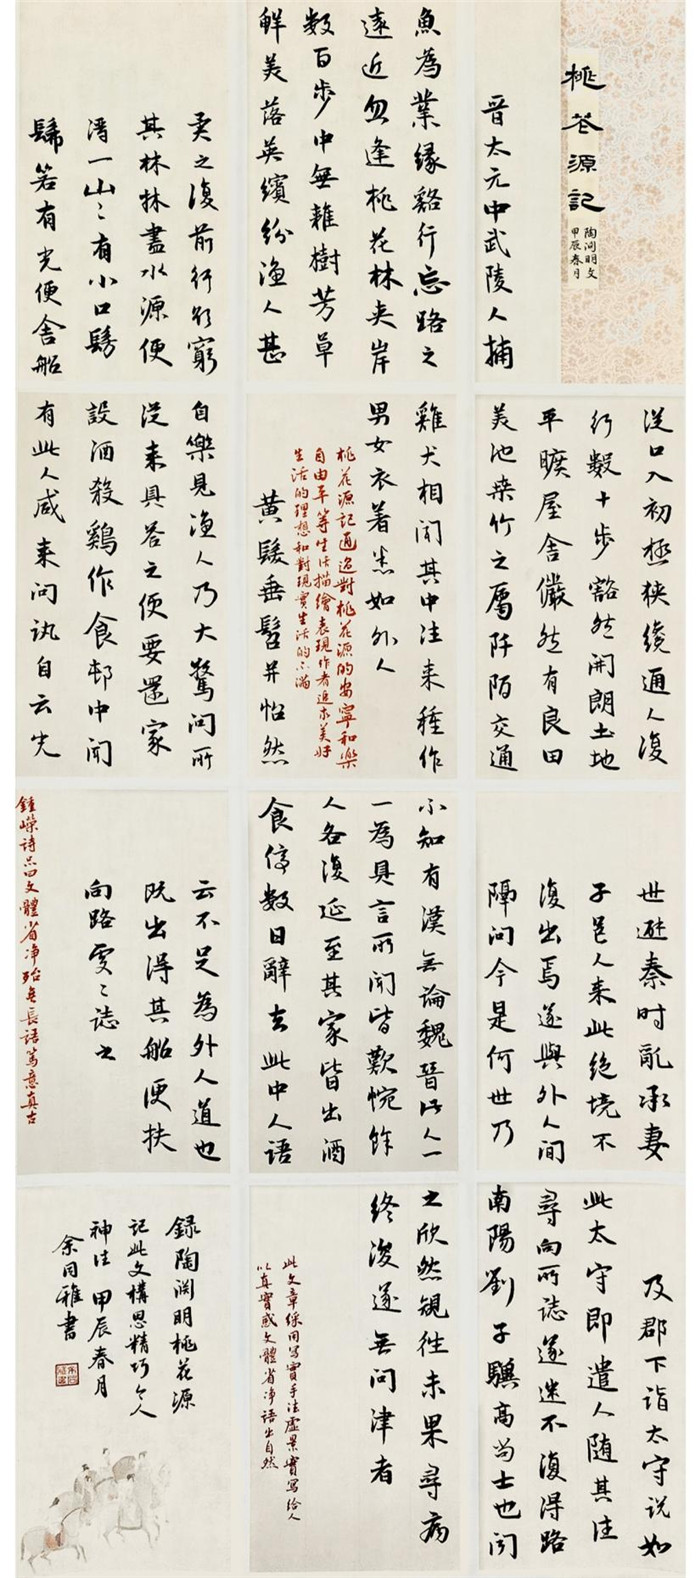 桃花源記
陶淵明文
甲辰春月
晋太元中武陵人捕
魚為業緣谿行忘路之
遠近忽逢桃花林夹岸
数百步中無雜樹芳草
鲜美落英繽紛渔人甚
異之復前行欲窮
其林林盡水源便
得一山山有小口髣
髴若有光便舍船
從口入初極狭纔通人復
行數十步豁然開朗土地
平曠屋舍儼然有良田
美池桒竹之屬阡陌交通
雞犬相聞其中往来種作
男女衣著悉如外人
桃花源記通过對桃花源的安寧和樂
自由平等生活描繪表現作者追求美好
生活的理想和對現實生活的不滿
黄髮垂髫并怡然
自樂見渔人乃大驚問所
從来具答之便要還家
設酒殺鷄作食邨中聞
有此人咸来問訊自云先
世避秦时亂率妻
子邑人来此绝境不
復出焉遂與外人間
隔问今是何世乃
不知有漢無論魏晋此人一
一為具言所聞皆歎惋餘
人各復延至其家皆出酒
食停數日辭去此中人語
云不足為外人道也
既出得其船便扶
向路處處誌之
鍾嶸诗品曰文體省净殆無長語篤意真古
及郡下詣太守说如
此太守即遣人随其往
尋向所誌遂迷不復得路
南陽劉子驥高尚士也闻
之欣然規往未果尋病
終後遂無问津者
此文章採用写實手法虚景實写给人
以真實感文體省净語出自然
録陶渊明桃花源
記此文構思精巧令人
神往甲辰春月
余同雅書